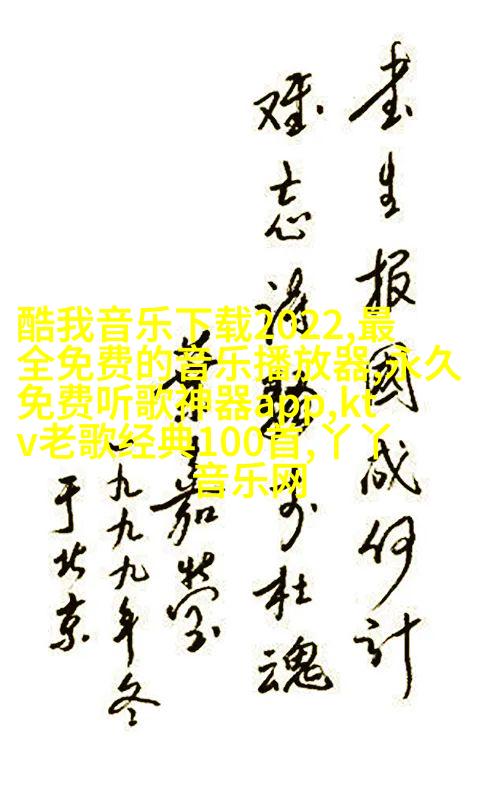 酷我音乐下载2022,最
全免费的音乐播放器,永久
免费听歌神器app,kt
v老歌经典100首,丫丫
音乐网
書生报國成何计
难忘诗骚李杜魂
葉嘉莹
一九九九年冬
于北京